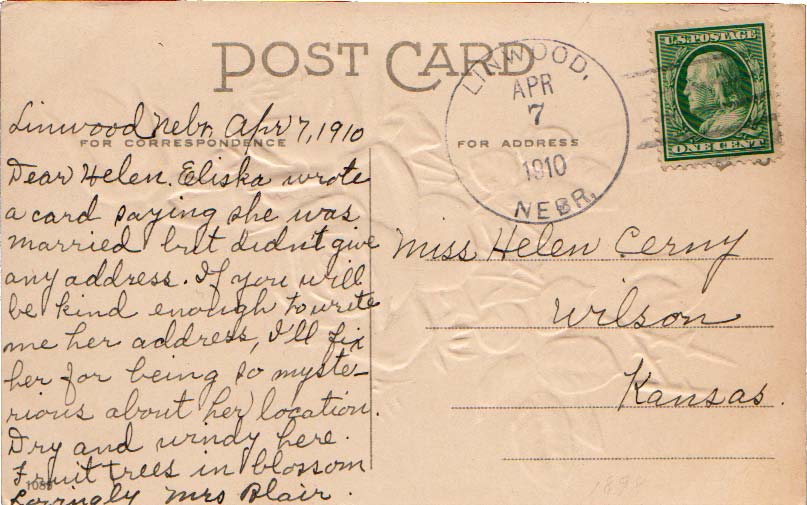 POST CARD
LINWOOD,
APR
7
1910
NEBR.
U.S. POSTAGE
ONE CENT
Linwood Nebr. Apr 7, 1910
FOR CORRESPONDENCE
FOR ADDRESS
Dear Helen. Eliska wrote
a card saying she was
married but didn't give
any address. If you will
be kind enough to write
me her address, I'll fix
her for being so myste-
rious about her location.
Dry and windy here.
Fruit trees in blossom
Lovingly Mrs Blair.
Miss Helen Cerny
Wilson
Kansas.